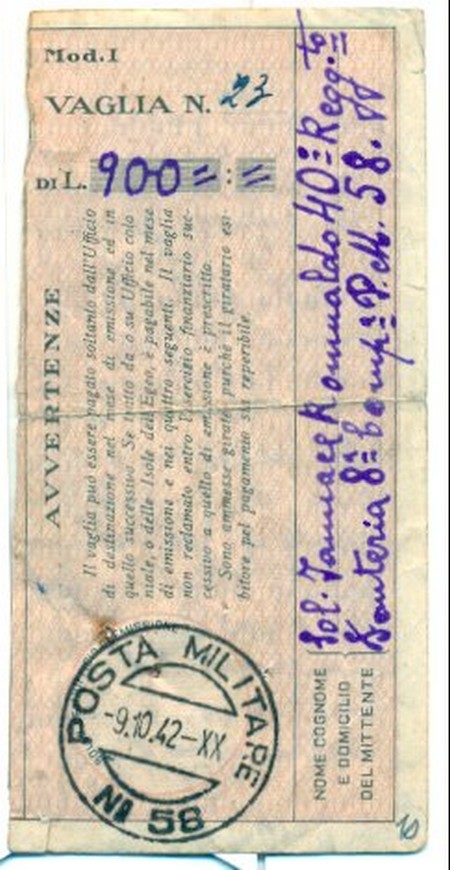 Mod. I
VAGLIA N. 23
DI L. 900= : =
AVVERTENZE
Il vaglia può essere pagato soltanto dall'Ufficio
di destinazione nel mese di emissione ed in
quello successivo. Se tratto da o su Ufficio colo
niale, o delle Isole dell'Egeo, è pagabile nel mese
di emissione e nei quattro seguenti. Il vaglia
non reclamato entro l'esercizio finanziario suc-
cessivo a quello di emissione è prescritto.
Sono ammesse girate purchè il giratario esi-
bitore pel pagamento sia reperibile.
NOME COGNOME
E DOMICILIO
DEL MITTENTE
Sol. Romualdo 40º= Regg.to=
8ª= Comp.= P.M. 58.
POSTA MILITARE
-9.10.42-XX
Nº 58
EMISSIONE
10